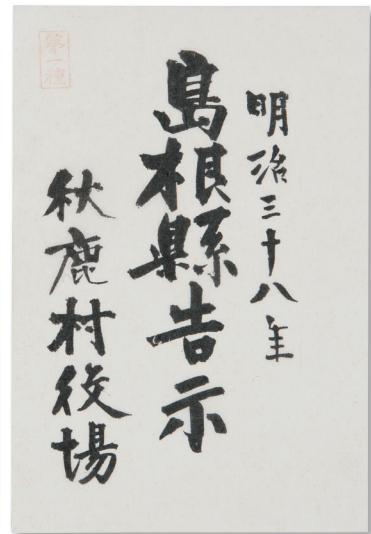 明治三十八年
島根縣告示
秋鹿村役場
第一種